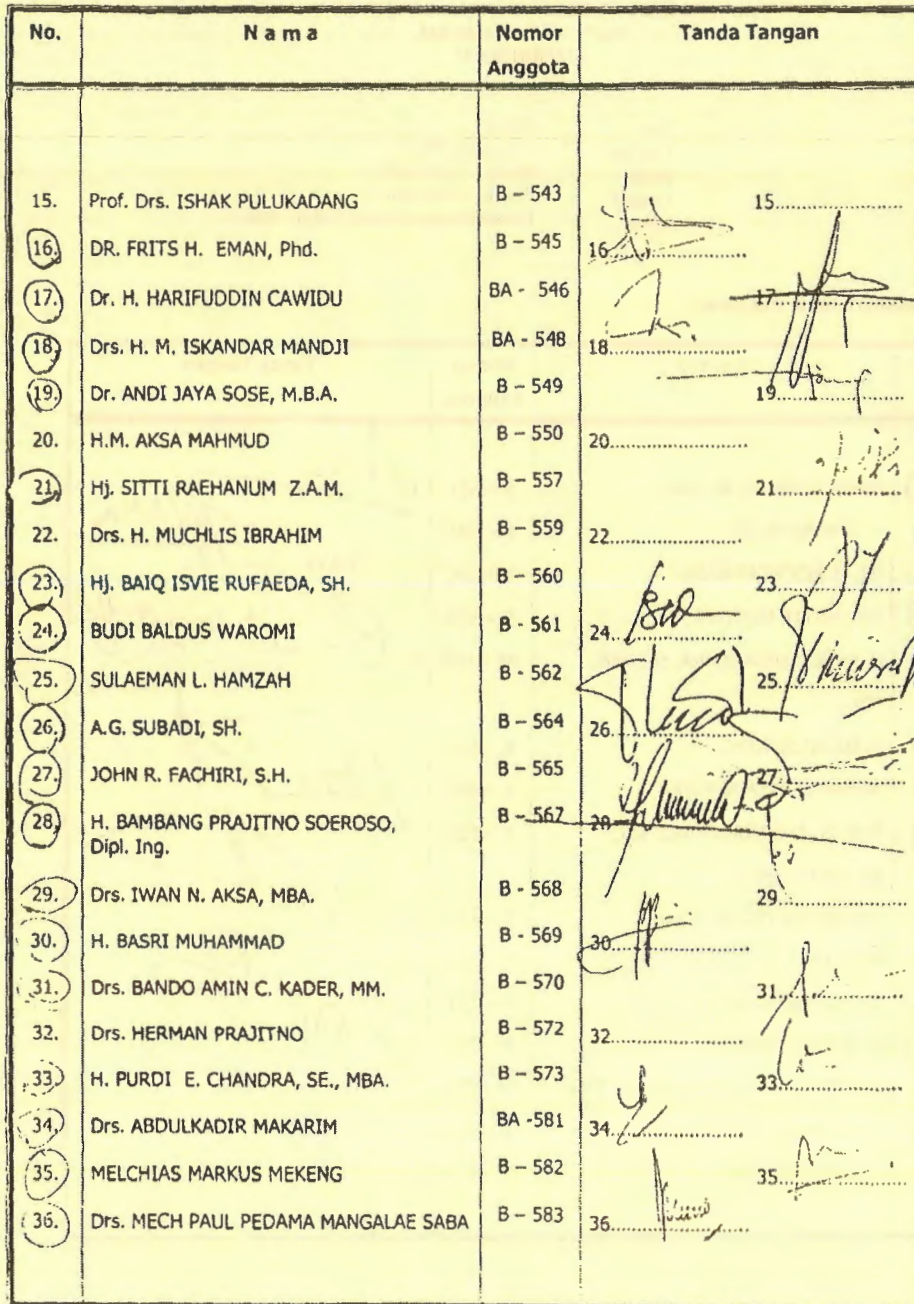 No. N a m a Nomor Anggota Tanda Tangan
15. Prof. Drs. ISHAK PULUKADANG B – 543 15..................
16. DR. FRITS H. EMAN, Phd. B – 545 16..................
17. Dr. H. HARIFUDDIN CAWIDU BA - 546 17..................
18. Drs. H. M. ISKANDAR MANDJI BA - 548 18..................
19. Dr. ANDI JAYA SOSE, M.B.A. B – 549 19..................
20. H.M. AKSA MAHMUD B – 550 20..................
21. Hj. SITTI RAEHANUM Z.A.M. B – 557 21..................
22. Drs. H. MUCHLIS IBRAHIM B – 559 22..................
23. Hj. BAIQ ISVIE RUFAEDA, SH. B – 560 23..................
24. BUDI BALDUS WAROMI B - 561 24..................
25. SULAEMAN L. HAMZAH B - 562 25..................
26. A.G. SUBADI, SH. B – 564 26..................
27. JOHN R. FACHIRI, S.H. B – 565 27..................
28. H. BAMBANG PRAJITNO SOEROSO, B – 567 28..................
Dipl. Ing.
29. Drs. IWAN N. AKSA, MBA. B - 568 29..................
30. H. BASRI MUHAMMAD B - 569 30..................
31. Drs. BANDO AMIN C. KADER, MM. B – 570 31..................
32. Drs. HERMAN PRAJITNO B – 572 32..................
33. H. PURDI E. CHANDRA, SE., MBA. B – 573 33..................
34. Drs. ABDULKADIR MAKARIM BA -581 34..................
35. MELCHIAS MARKUS MEKENG B – 582 35..................
36. Drs. MECH PAUL PEDAMA MANGALAE SABA B – 583 36..................